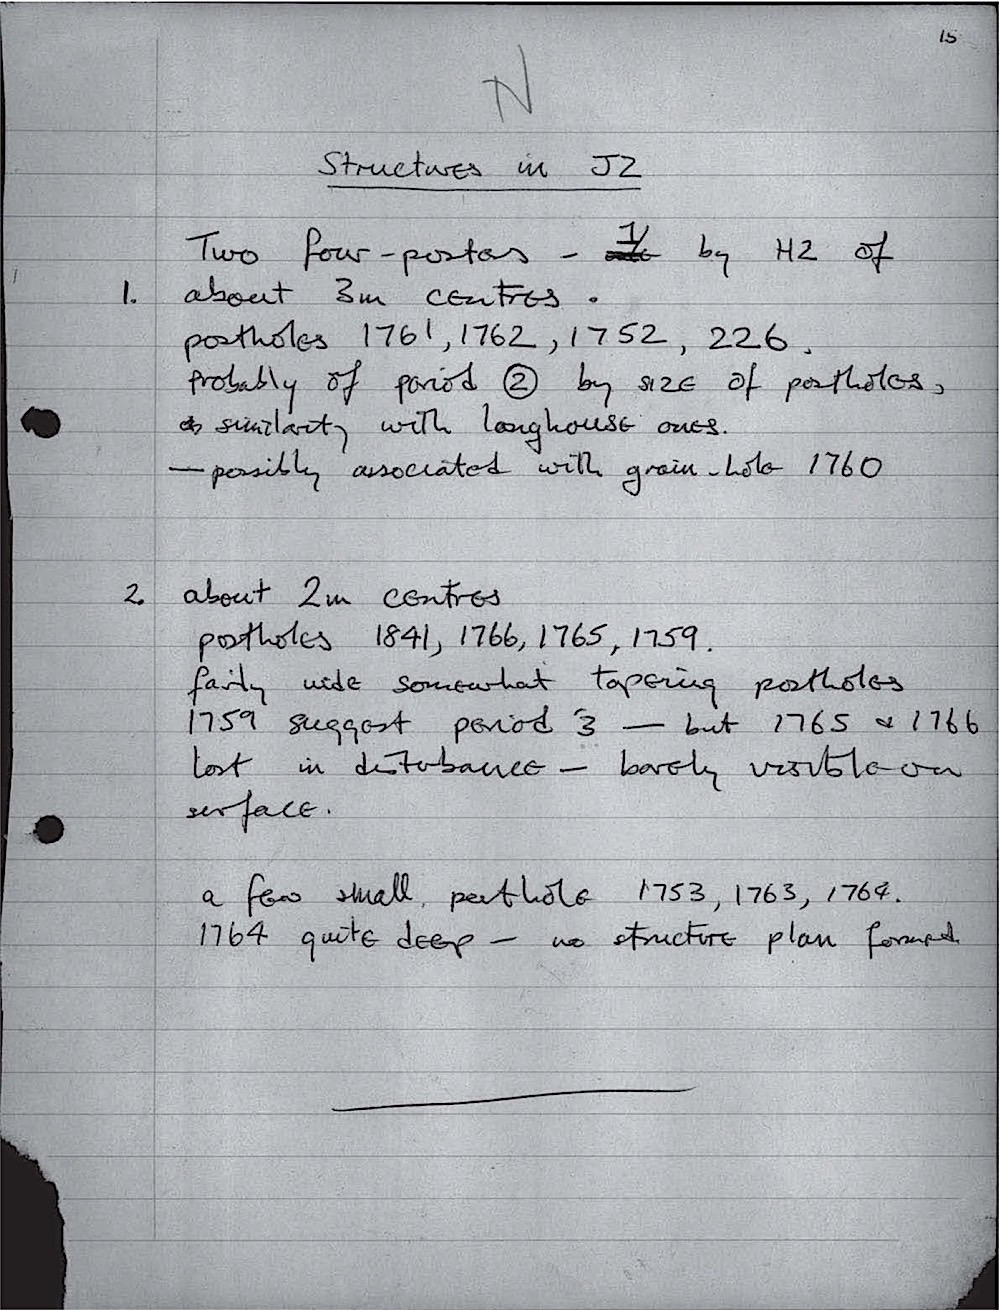 15
N
Structures in J2
Two four-posters - 1/ by H2 of
1. about 3m centres.
postholes 1761, 1762, 1752, 226.
Probably of period ② by size of postholes,
similarity with longhouse ones.
— possibly associated with grain-hole 1760
2. about 2m centres
postholes 1841, 1766, 1765, 1759.
fairly wide somewhat tapering postholes
1759 suggest period 3 — but 1765 & 1766
lost in disturbance — barely visible on
surface.
a few small posthole 1753, 1763, 1764.
1764 quite deep — no structure plan formed